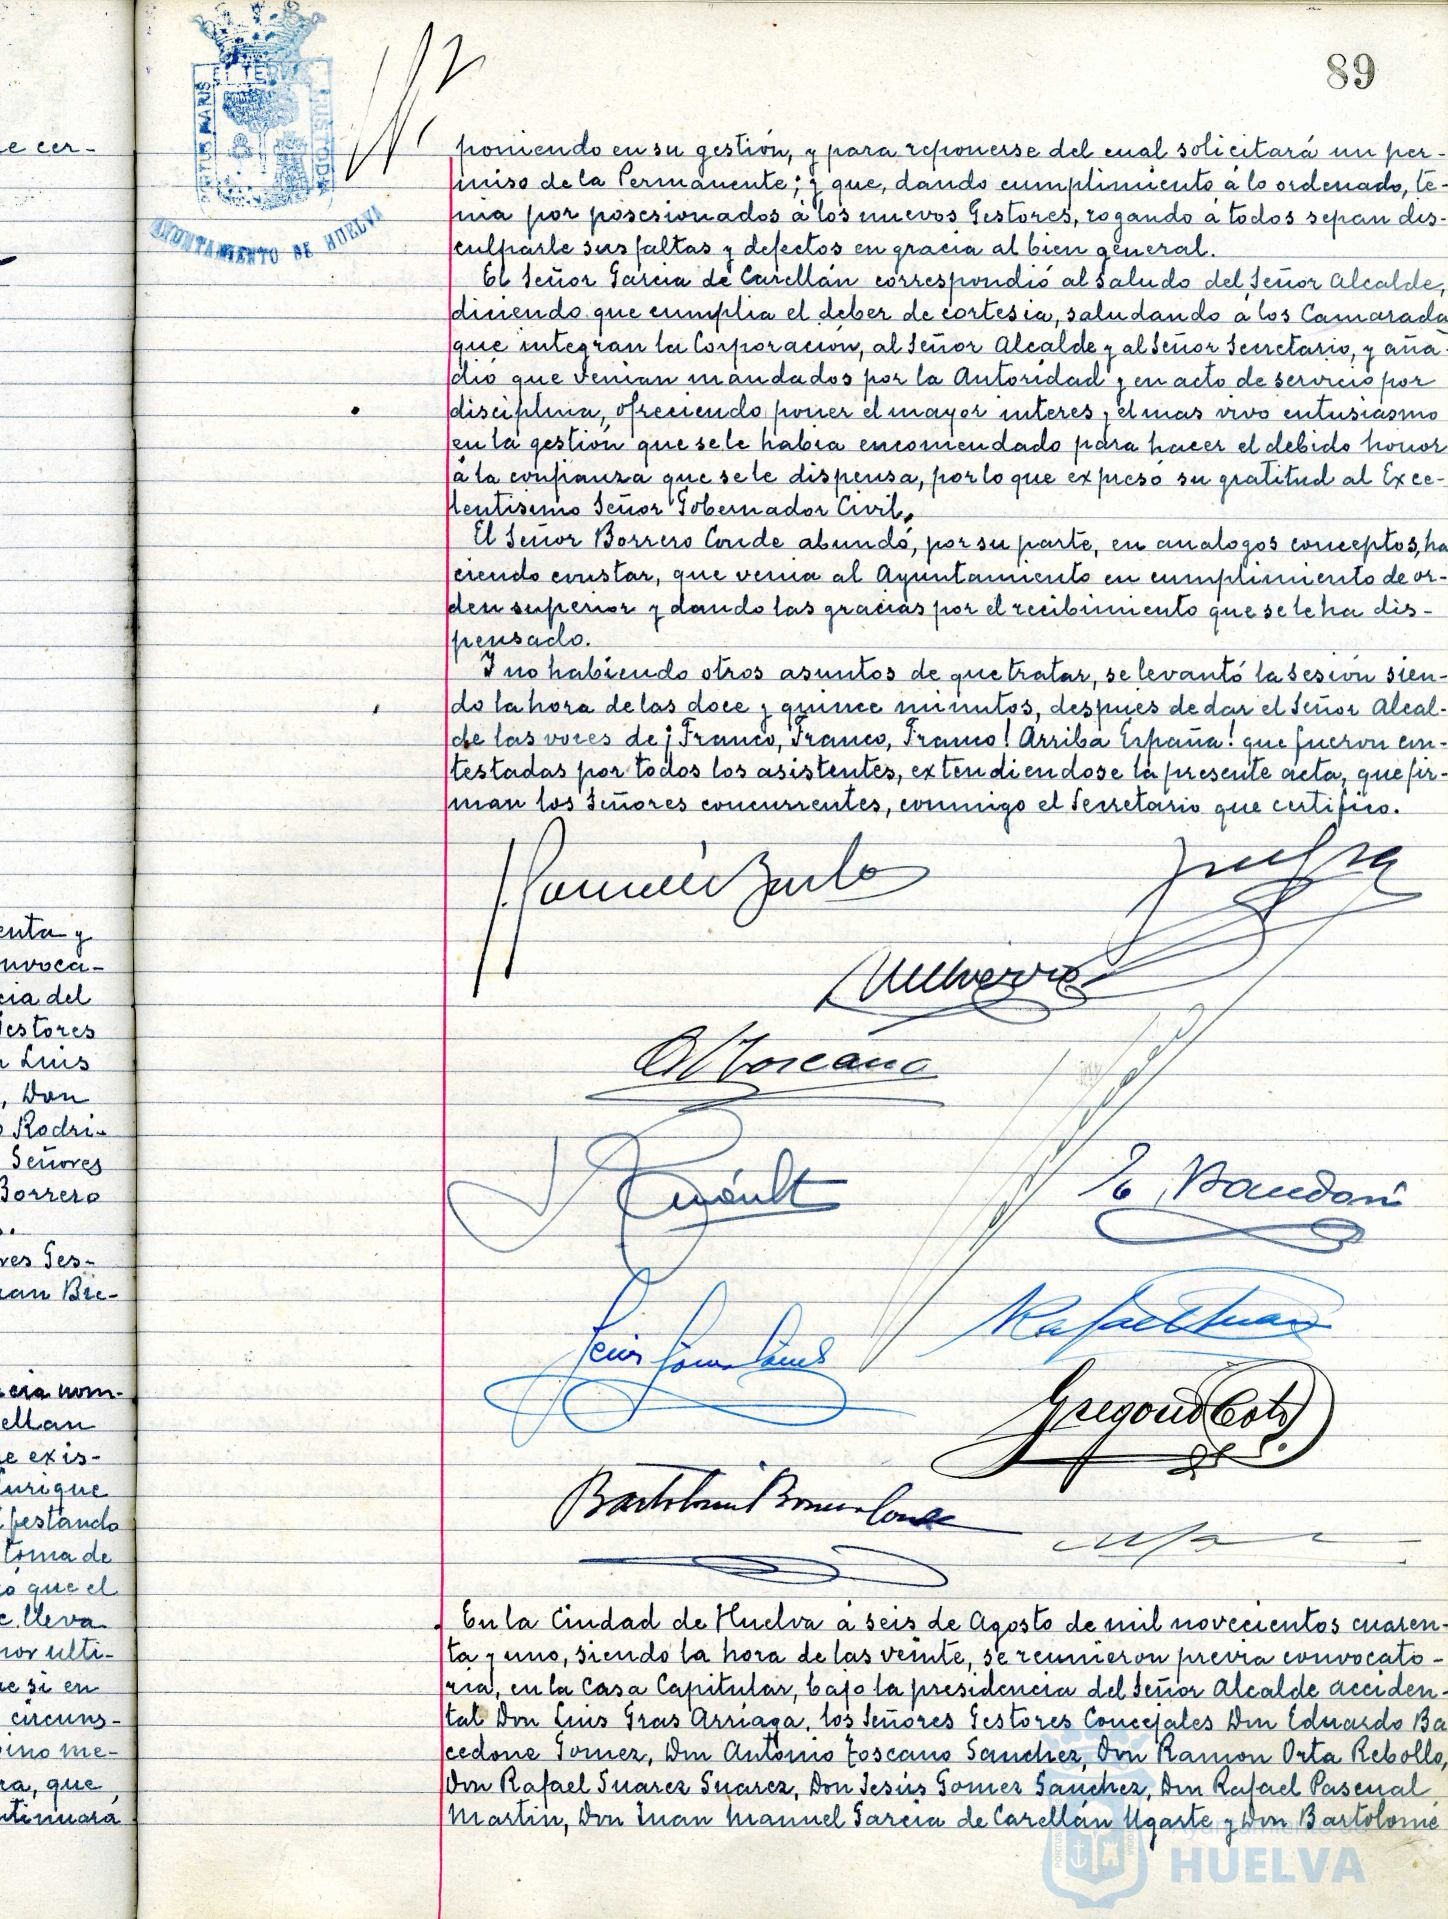 89
PORTUS MARIS ET TERRAE CUSTODIA
AYUNTAMIENTO DE HUELVA
poniendo en su gestión, y para reponerse del cual solicitará un per-
miso de la Permanente; y que, dando cumplimiento á lo ordenado, te-
nia por posesionados á los nuevos Gestores, rogando á todos sepan dis-
culparle sus faltas y defectos en gracia al bien general.
El Señor Garcia de Carellán correspondió al saludo del Señor Alcalde,
diciendo que cumplia el deber de cortesia, saludando a los Camarada
que integran la Corporación, al Señor Alcalde y al Señor Secretario, y aña-
dió que venian mandados por la Autoridad y en acto de servicio por
disciplina, ofreciendo poner el mayor interes y el mas vivo entusiasmo
en la gestión que se le habia encomendado para hacer el debido honor
á la confianza que se le dispensa, por lo que expresó su gratitud al Exce-
lentisimo Señor Gobernador Civil.
El Señor Borrero Conde abundó, por su parte, en analogos conceptos, ha
ciendo constar, que venia al Ayuntamiento en cumplimiento de or-
den superior y dando las gracias por el recibimiento que se le ha dis-
pensado.
Y no habiendo otros asuntos de que tratar, se levantó la sesión sien-
do la hora de las doce y quince minutos, despues de dar el Señor Alcal-
de las voces de ¡Franco, Franco, Franco! Arriba España! que fueron con-
testadas por todos los asistentes, extendiendose la presente acta, que fir-
man los Señores concurrentes, conmigo el Secretario que certifico.
A Toscano
Rafael Suarez
Gregorio
Bartolomé Borrero Conde
En la Ciudad de Huelva á seis de Agosto de mil novecientos cuaren-
ta y uno, siendo la hora de las veinte, se reunieron previa convocato-
ria, en la Casa Capitular, bajo la presidencia del Señor Alcalde acciden-
tal Don Luis Gras Arriaga, los Señores Gestores Concejales Don Eduardo Ba
cedone Gomez, Don Antonio Toscano Sanchez, Don Ramon Orta Rebollo,
Don Rafael Suarez Suarez, Don Jesús Gomez Sanchez, Don Rafael Pascual
Martin, Don Juan Manuel Garcia de Carellán Ugarte y Don Bartolomé
Ayuntamiento de
HUELVA
e cer-
enta y
nvoca-
cia del
Gestores
n Luis
, Don
o Rodri-
Señores
Borrero
res Ges-
uan Bre-
cia nom-
ellan
e exis-
Enrique
festando
toma de
o que el
e lleva
nor ulti-
e si en
circuns-
pino me-
ra, que
ntinuará